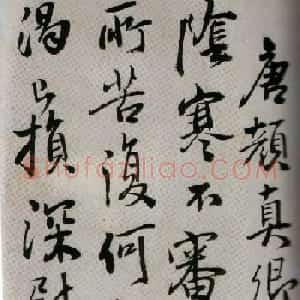 唐顏真卿
陰寒不審
所苦復何
渴已損深慰
Shufaziliao.com